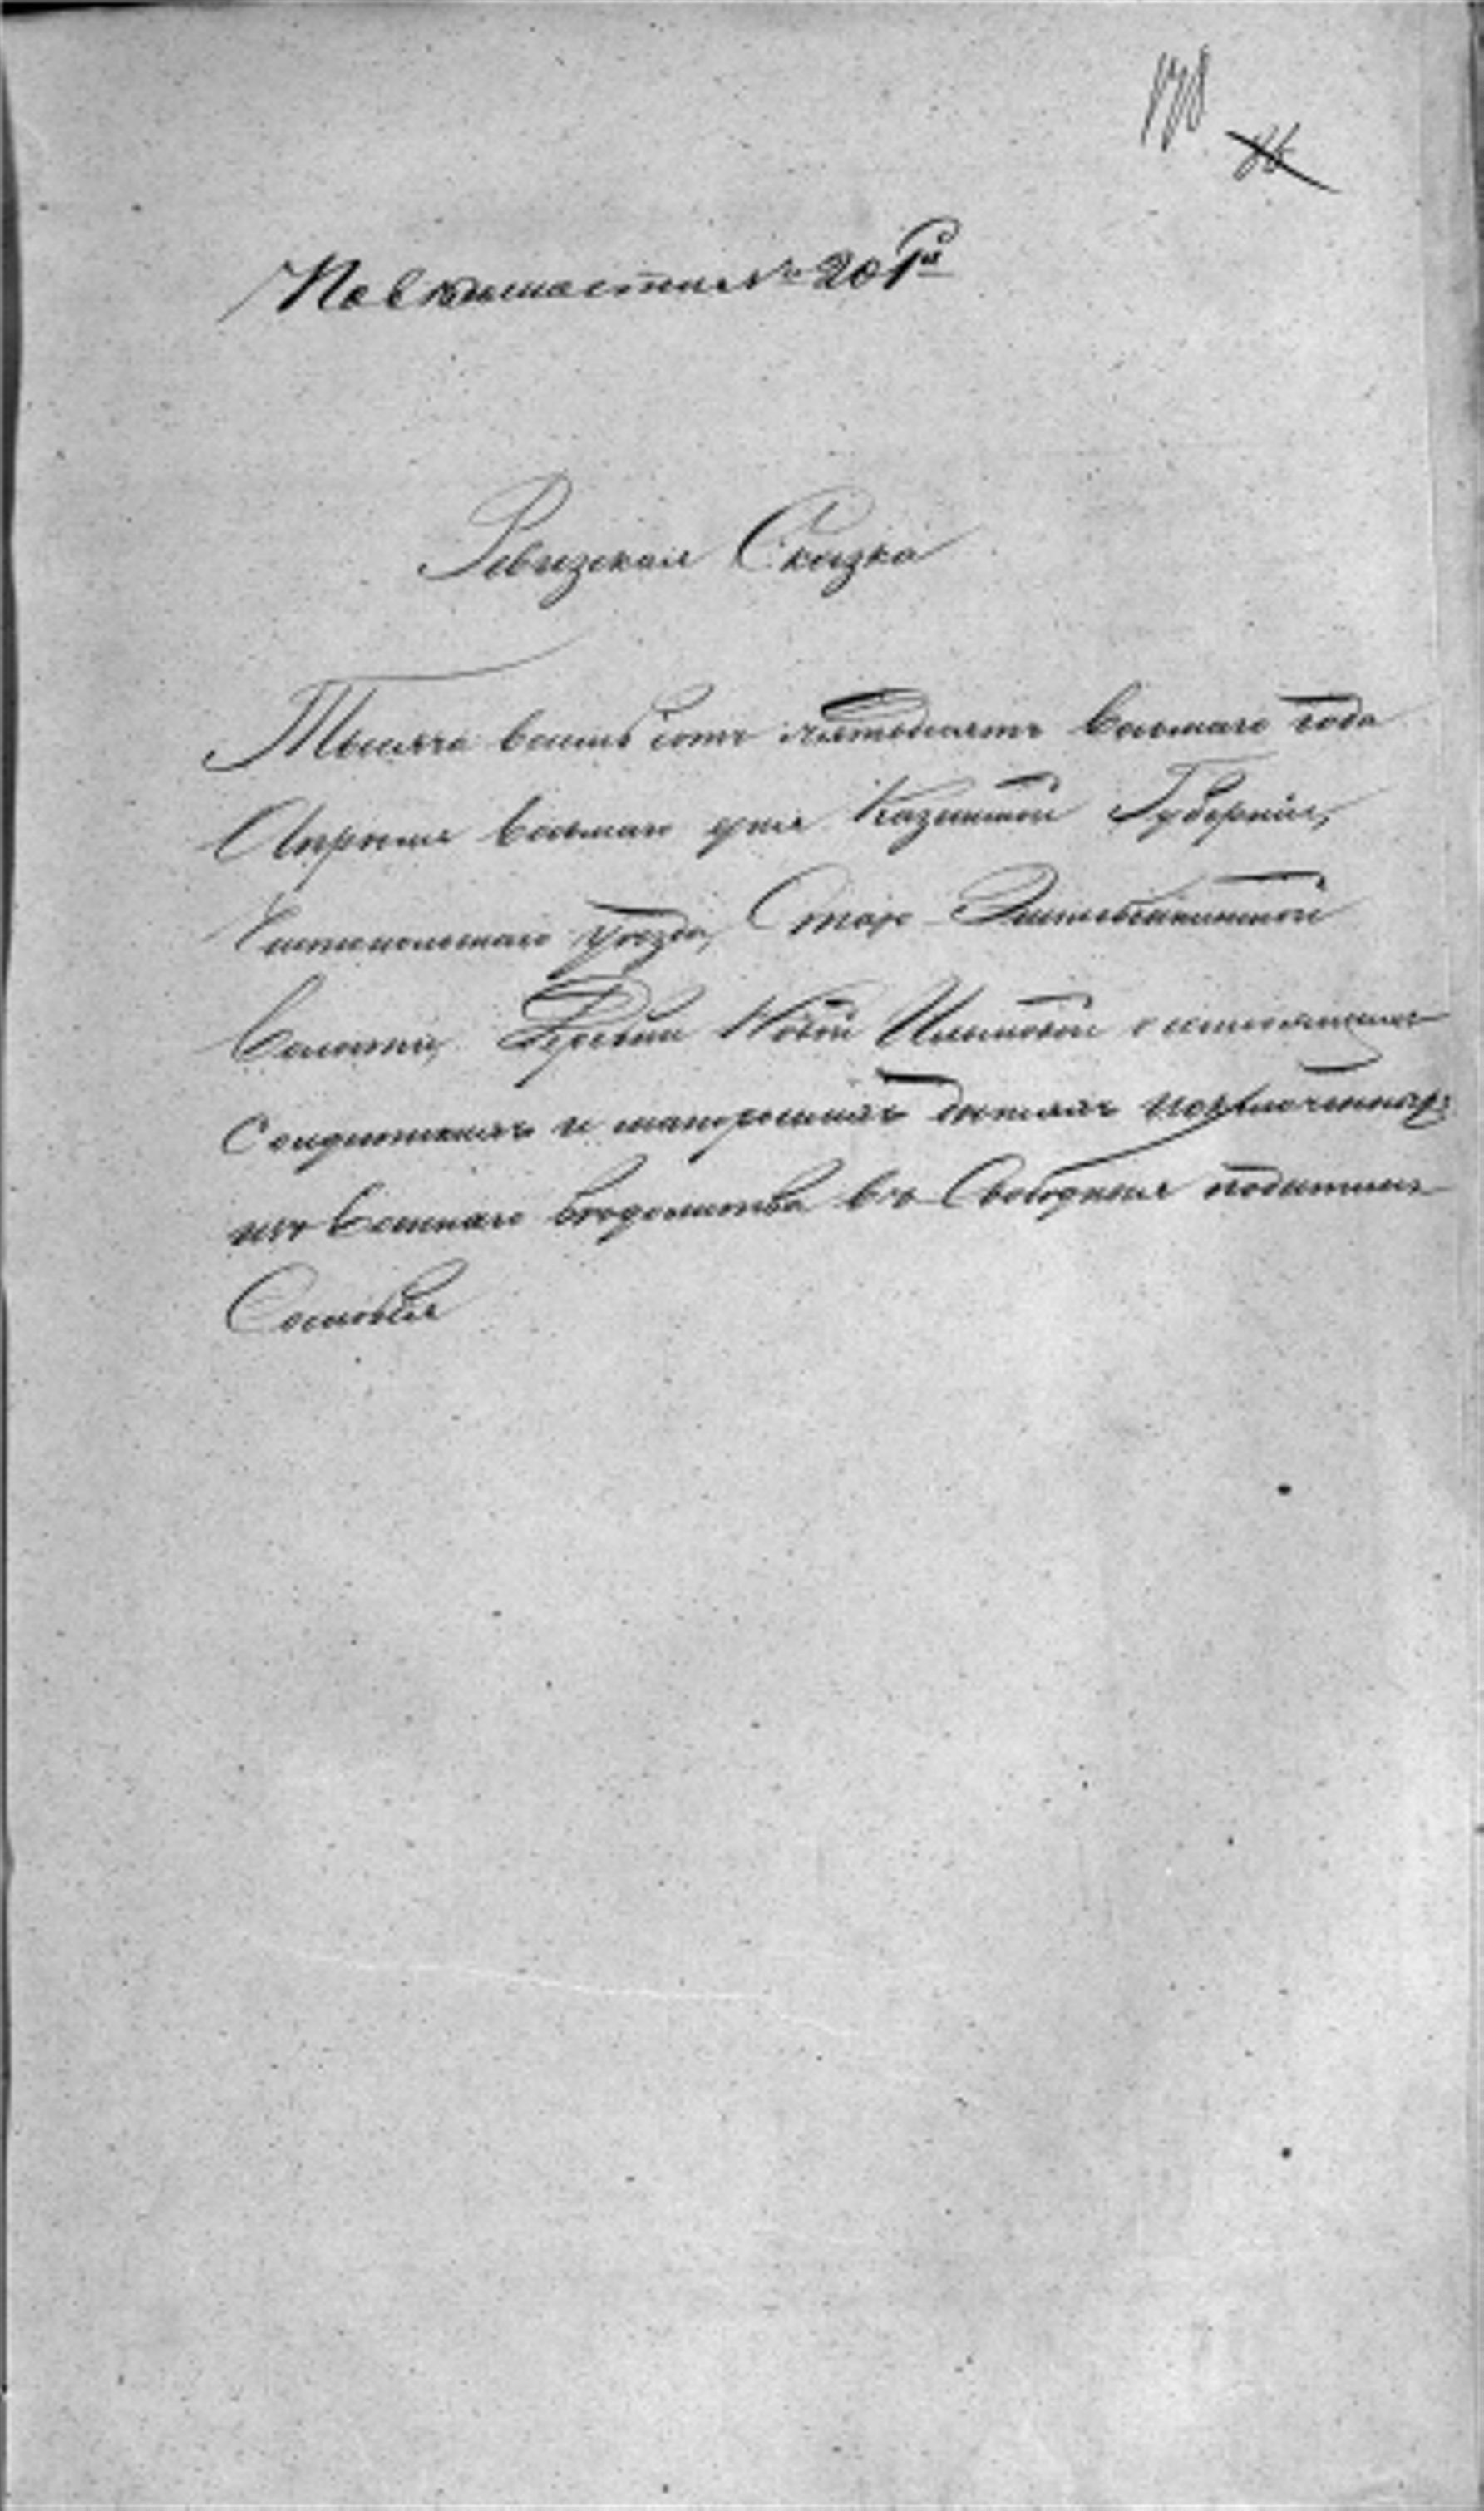 178
86
По вѣдомости № 201й
Ревизская Сказка
Тысяча восемь сотъ пятьдесятъ восьмаго года
Апрѣля восьмаго дня Казанской Губерніи,
Чистопольскаго уѣзда, Старо-
волости, Деревни Новой Ильмовой о состоящихъ
Солдатскихъ и матроскихъ дѣтяхъ изключенныхъ
изъ Военнаго вѣдомства въ Свободныя податныя
Сословія